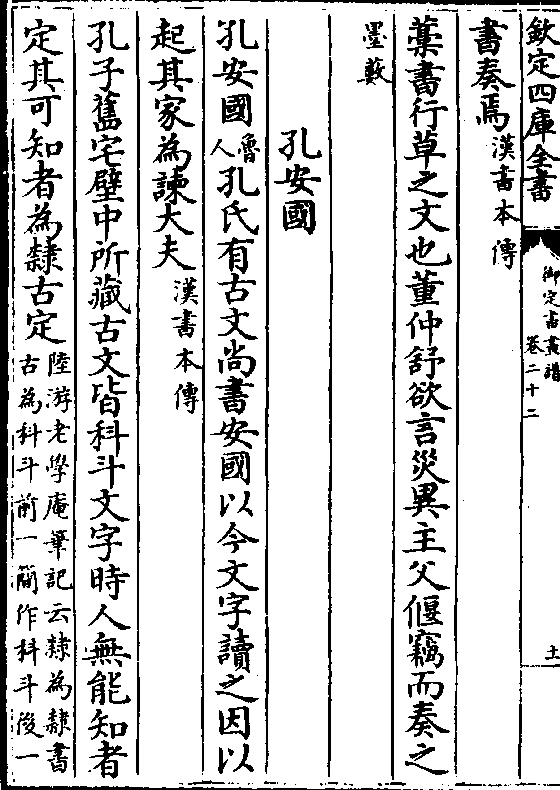 欽定四庫全書
御定書畫譜
卷二十二
土
書奏焉漢書本傳
藁書行草之文也董仲舒欲言災異主父偃竊而奏之
墨藪
孔安國
孔安國魯人孔氏有古文尚書安國以今文字讀之因以
起其家為諫大夫漢書本傳
孔子舊宅壁中所藏古文皆科斗文字時人無能知者
定其可知者為隸古定陸游老學庵筆記云隸為隸書
古為科斗前一簡作科斗後一